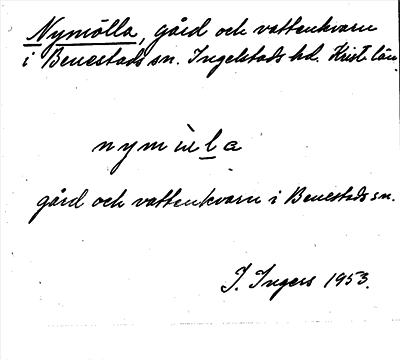 Nymölla, gård och vattenkvarn
i Benestads sn. Ingelstads hd. Krist. län
gård och vattenkvarn i Benestads sn.
I. Ingers 1953.